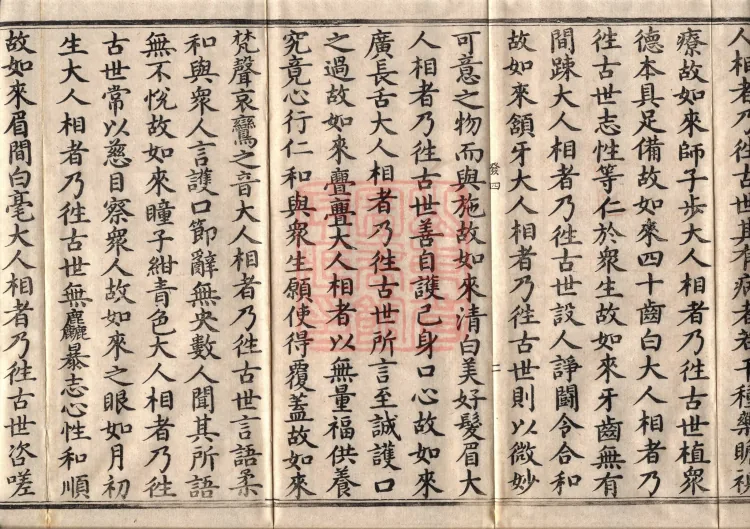 人相者乃徃古世其有病者若干種藥
療故如來師子步大人相者乃徃古世植衆
德本具足備故如來四十齒白大人相者乃
徃古世志性等仁於衆生故如來牙齒無有
間踈大人相者乃徃古世設人諍鬪令合和
故如來頟牙大人相者乃徃古世則以微妙
發四
二
可意之物而與施故如來清白美好髮眉大
人相者乃徃古世善自護己身口心故如來
廣長舌大人相者乃徃古世所言至誠護口
之過故如來亹亹大人相者以無量福供養
究竟心行仁和與衆生願使得覆蓋故如來
梵聲哀鸞之音大人相者乃徃古世言語柔
和與衆人言護口節辭無央數人聞其所語
無不悅故如來瞳子紺青色大人相者乃徃
古世常以慈目察衆人故如來之眼如月初
生大人相者乃徃古世無麤暴志心性和順
故如來眉間白毫大人相者乃徃古世咨嗟